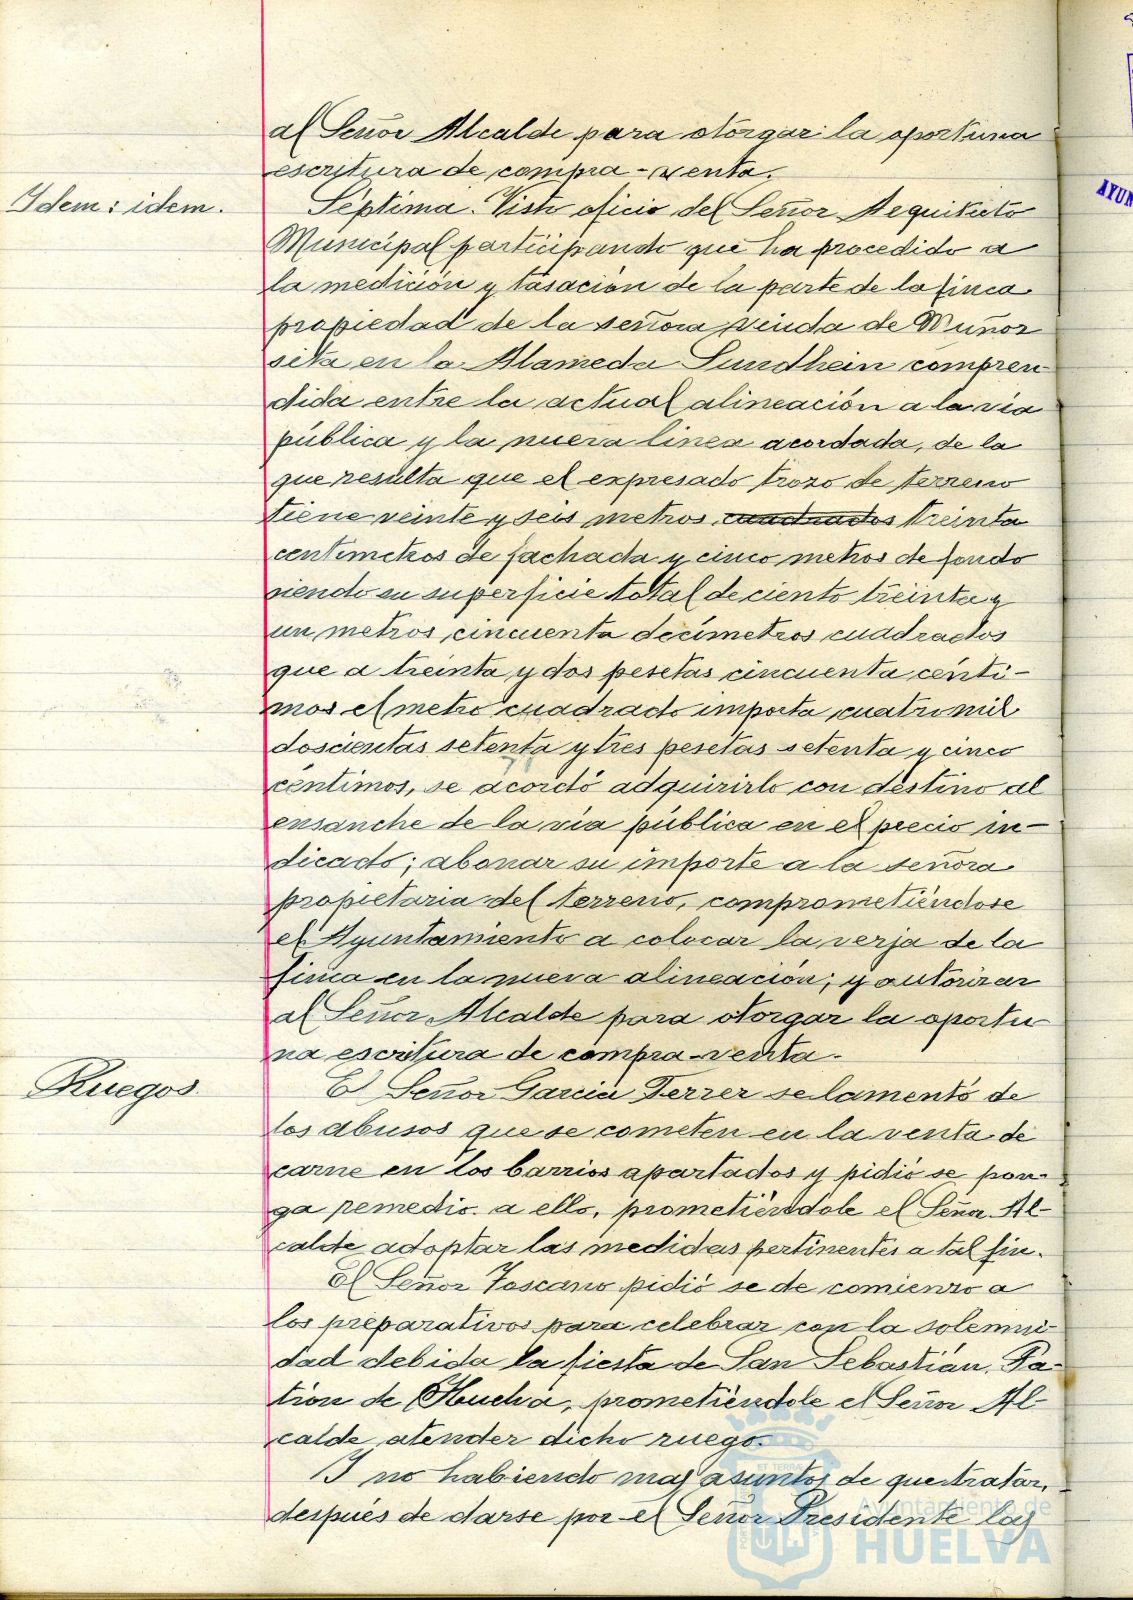 al Señor Alcalde para otorgar la oportuna
escritura de compra-venta.
Idem: idem.
Séptima. Visto oficio del Señor Arquitecto
Municipal participando que ha procedido a
la medición y tasación de la parte de la finca
propiedad de la señora viuda de Muñoz
sita en la Alameda Sundhein compren
dida entre la actual alineación a la vía
pública y la nueva linea acordada, de la
que resulta que el expresado trozo de terreno
tiene veinte y seis metros cuadrados treinta
centímetros de fachada y cinco metros de fondo
siendo su superficie total de ciento treinta y
un metros, cincuenta decímetros cuadrados
que a treinta y dos pesetas cincuenta cénti-
mos el metro cuadrado importa cuatro mil
doscientas setenta y tres pesetas setenta y cinco
céntimos, se acordó adquirirlo con destino al
ensanche de la vía pública en el precio in-
dicado; abonar su importe a la señora
propietaria del terreno, comprometiéndose
el Ayuntamiento a colocar la verja de la
finca en la nueva alineación; y autorizar
al Señor Alcalde para otorgar la oportu
na escritura de compra-venta.
Ruegos.
El Señor Garcia Ferrer se lamentó de
los abusos que se cometen en la venta de
carne en los barrios apartados y pidió se pon-
ga remedio a ello, prometiéndole el Señor Al-
calde adoptar las medidas pertinentes a tal fin.
El Señor Toscano pidió se de comienzo a
los preparativos para celebrar con la solemni
dad debida la fiesta de San Sebastián, Pa-
tron de Huelva, prometiéndole el Señor Al-
calde atender dicho ruego.
Y no habiendo mas asuntos de que tratar,
después de darse por el Señor Presidente las
Ayuntamiento de
HUELVA
AYUN